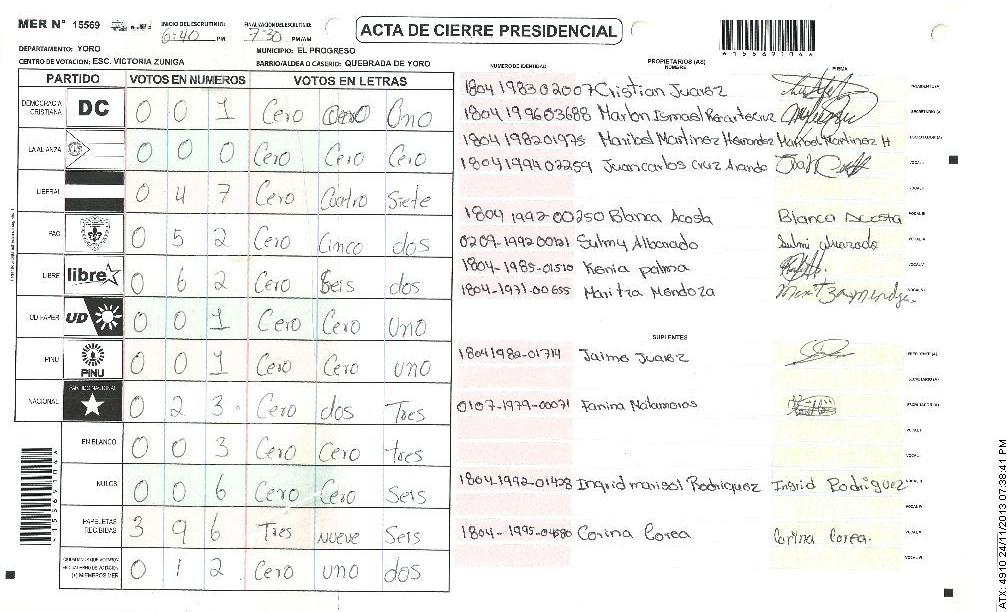 MER Nº 15569
INICIO DEL ESCRUTINIO: 6:40 PM
FINALIZACIÓN ESCRUTINIO: 7:30 PM/AM
ACTA DE CIERRE PRESIDENCIAL
DEPARTAMENTO: YORO
MUNICIPIO: EL PROGRESO
CENTRO DE VOTACION: ESC. VICTORIA ZUNIGA
BARRIO/ALDEA O CASERIO: QUEBRADA DE YORO
PARTIDO VOTOS EN NUMEROS VOTOS EN LETRAS
DEMOCRACIA CRISTIANA DC 0 0 1 Cero Cero Uno
LA ALIANZA 0 0 0 Cero Cero Cero
LIBERAL 0 4 7 Cero Cuatro Siete
PAC 0 5 2 Cero Cinco dos
LIBRE libre 0 6 2 Cero Seis dos
UD FAPER UD 0 0 1 Cero Cero Uno
PINU PINU 0 0 1 Cero Cero uno
NACIONAL PARTIDO NACIONAL 0 2 3 . Cero dos Tres
EN BLANCO 0 0 3 Cero Cero tres
NULOS 0 0 6 Cero Cero Seis
PAPELETAS RECIBIDAS 3 9 6 Tres nueve Seis
(+) MIEMBROS MER 0 1 2 . Cero uno dos
NUMERO DE IDENTIDAD
PROPIETARIOS (AS)
NOMBRE
FIRMA
1804 1983 02007 Cristian Juarez PRESIDENTE (A)
1804 199603688 Marlon Ismael SECRETARIO (A)
1804 198201975 Maribel Martinez Hernandez Maribel Martinez H ESCRUTADOR (A)
1804 1994 02259 Juancarlos Cruz VOCAL I
VOCAL II
1804 1992-00250 Blanca Acosta Blanca Acosta VOCAL III
0209-1992 00121 Sulmy Albarado Sulmi alvarado VOCAL IV
1804-1985-01510 Kenia palma VOCAL V
1804-1971-00655 Maritza Mendoza VOCAL VI
SUPLENTES
1804 1982-01714 Jaime Juarez PRESIDENTE (A)
SECRETARIO (A)
0107-1979-00071 Fanina Matamoros ESCRUTADOR (A)
VOCAL I
VOCAL II
1804-1992-01428 Ingrid marisol Rodriquez Ingrid Rodriguez
VOCAL IV
1804-1995-04680 Corina Corea Corina Corea. VOCAL V
VOCAL VI
ATX: 4910 24/11/2013 07:38:41 PM